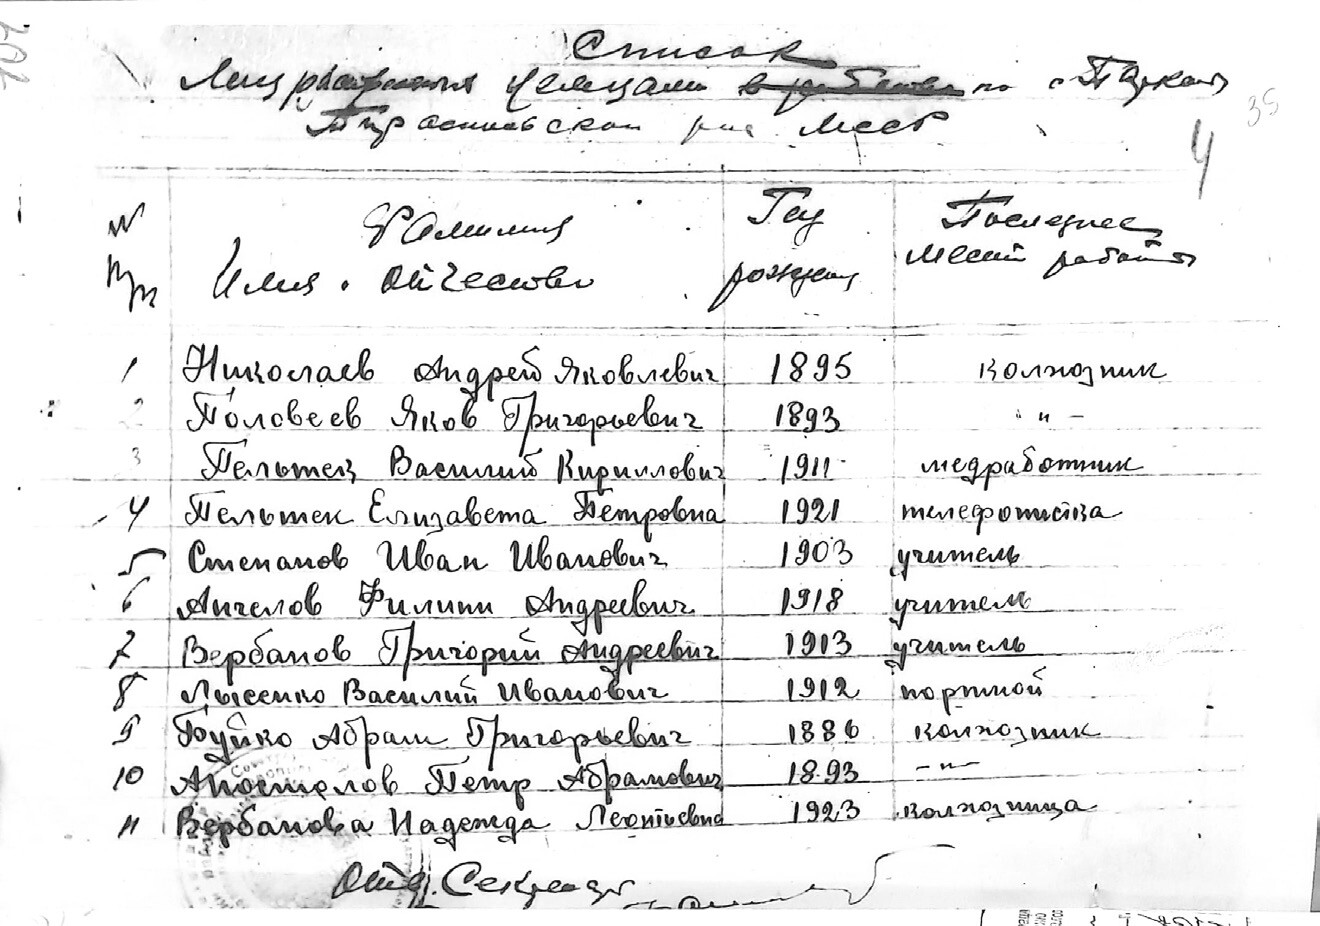 Список
Лиц расстрелянных немцами в рабство по с. Паркан
Тираспольской рна МССР
35
4
№
п/п
Фамилия
Имя. Отчество
Год
рождения
Последнее
место работы
1 Николаев Андрей Яковлевич 1895 колхозник
2 Половеев Яков Григорьевич 1893 -"-
3 Пельтек Василий Кириллович 1911 медработник
4 Пельтек Елизавета Петровна 1921 телефонистка
5 Степанов Иван Иванович 1903 учитель
6 Ангелов Филипп Андреевич 1918 учитель
7 Вербанов Григорий Андреевич 1913 учитель
8 Лысенко Василий Иванович 1912 портной
9 Буйко Абрам Григорьевич 1886 колхозник
10 Апостолов Петр Абрамович 1893 -"-
11 Вербанова Надежда Леонтьевна 1923 колхозница
Отв. Секретарь